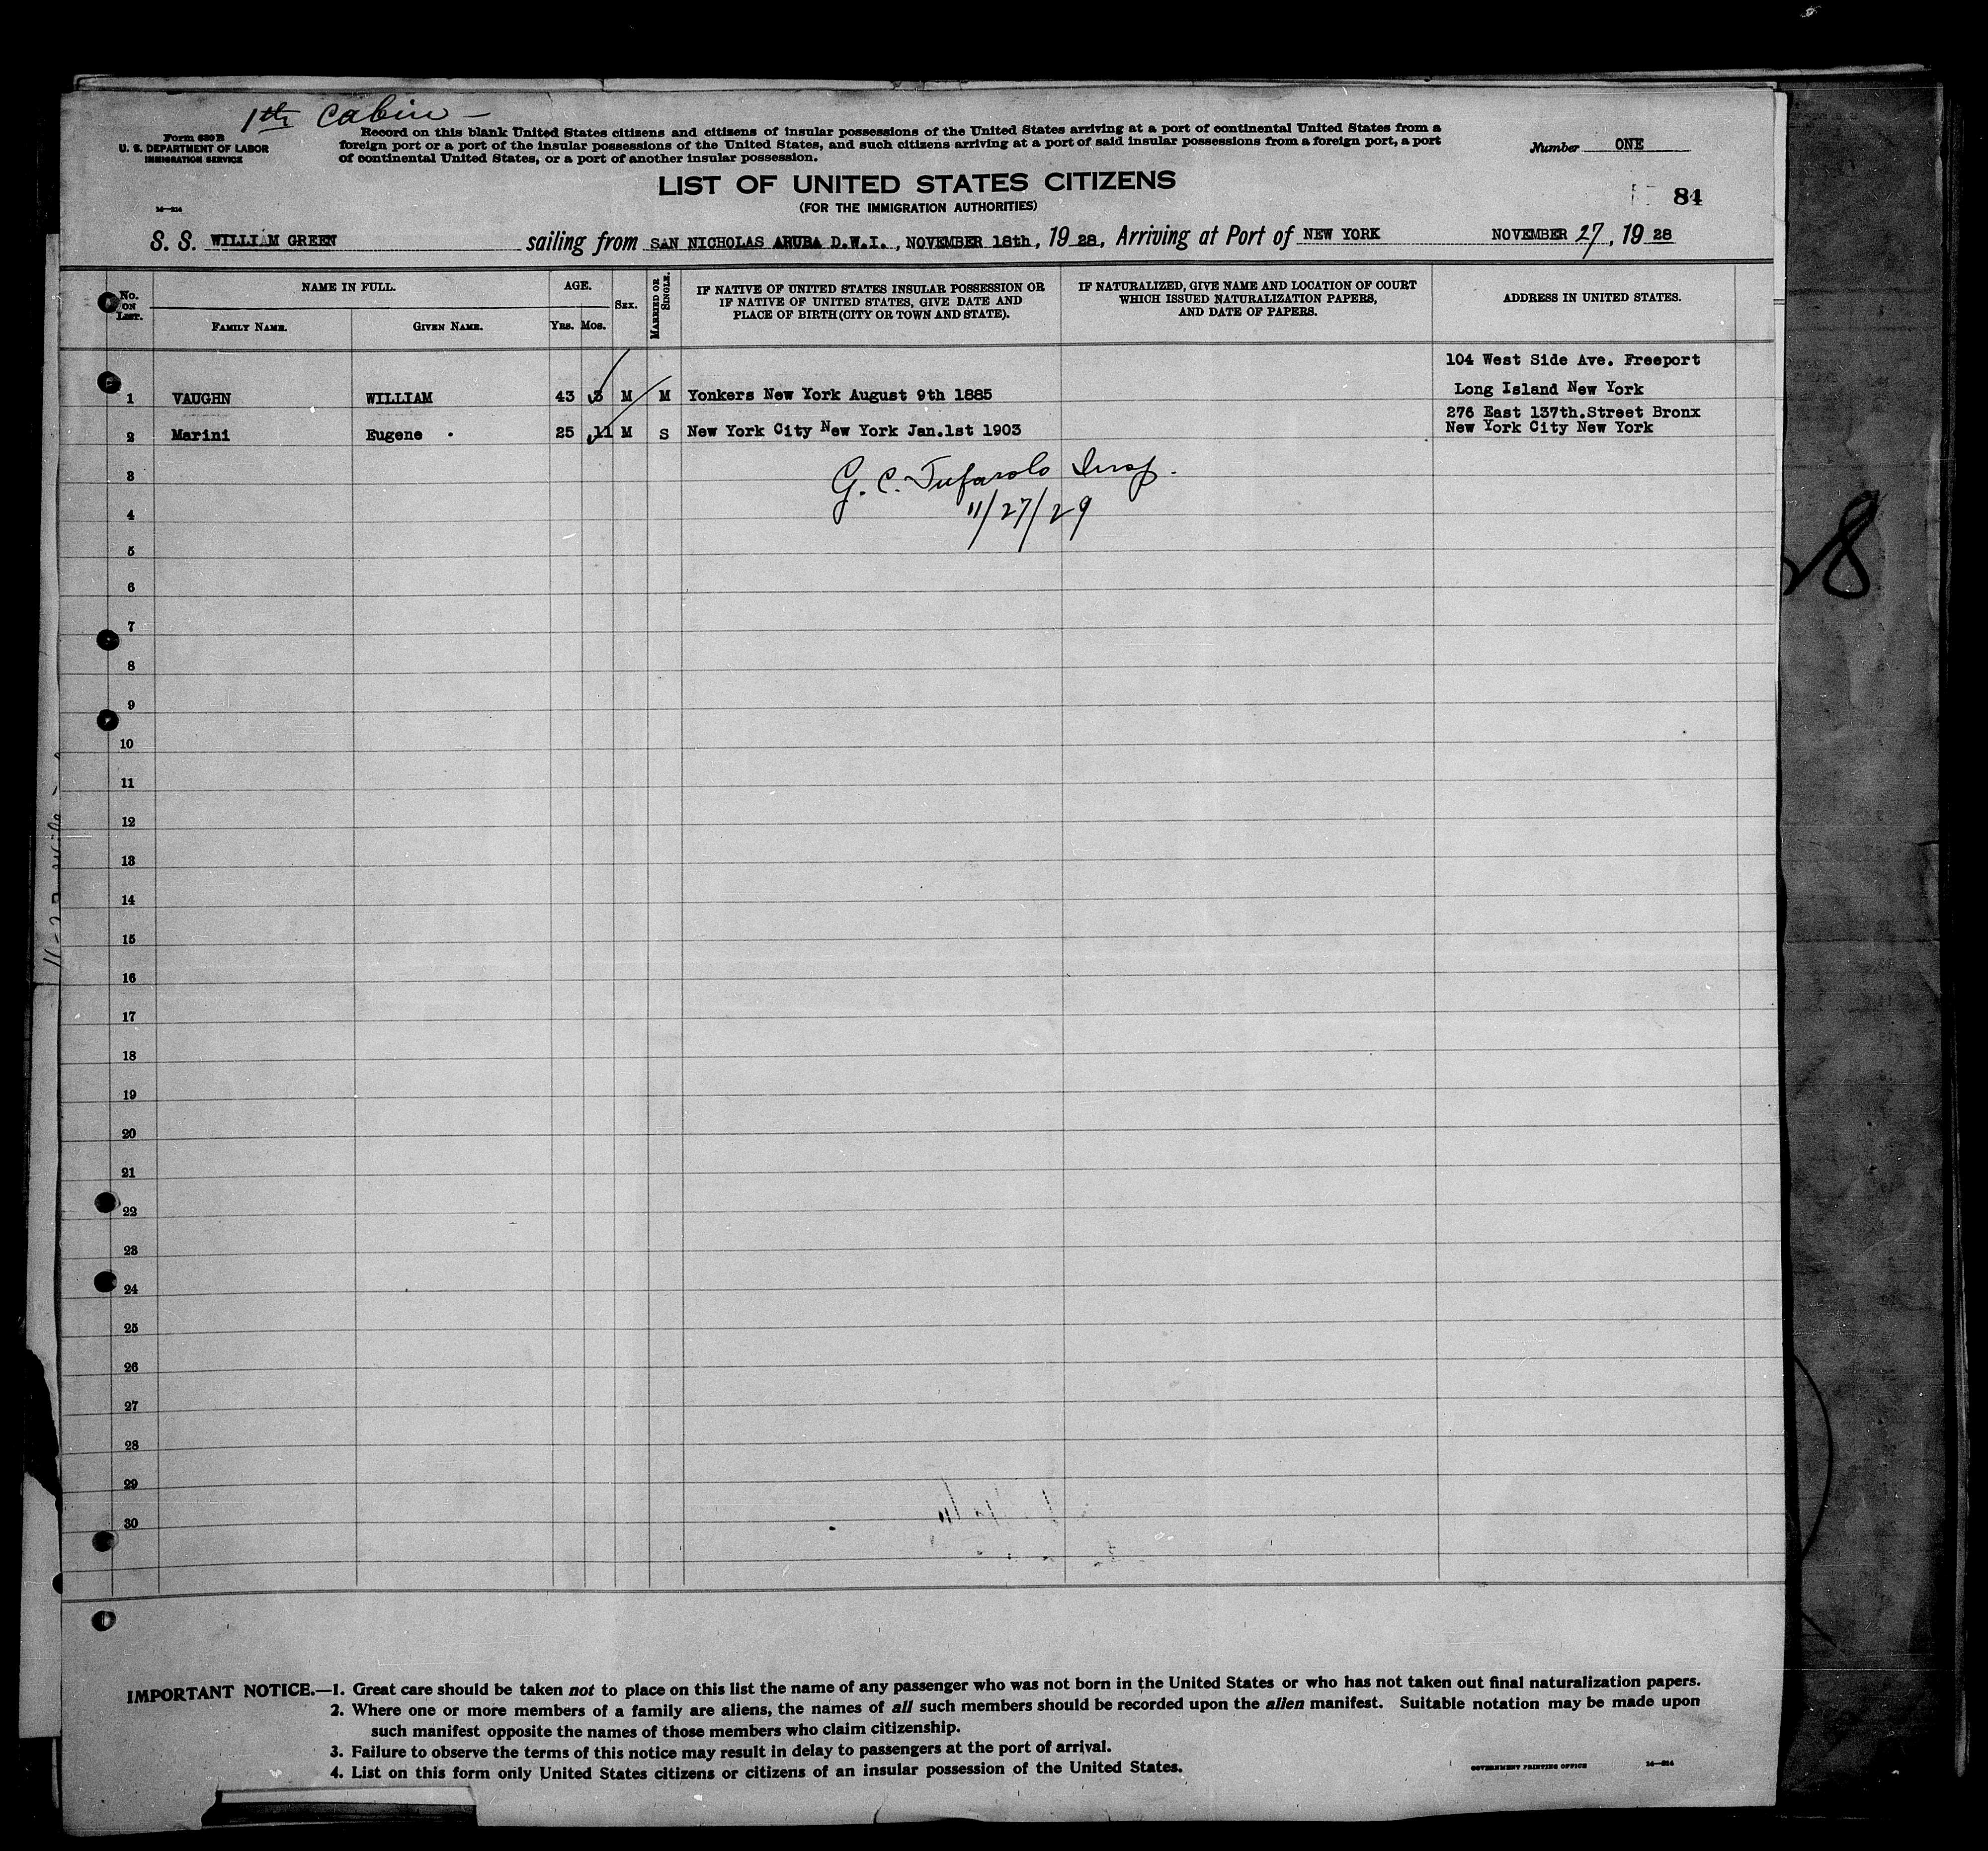 1th Cabin —
Form 630 B
U. S. DEPARTMENT OF LABOR
IMMIGRATION SERVICE
Record on this blank United States citizens and citizens of insular possessions of the United States arriving at a port of continental United States from a
foreign port or a port of the insular possessions of the United States, and such citizens arriving at a port of said insular possessions from a foreign port, a port
of continental United States, or a port of another insular possession.
Number ONE
LIST OF UNITED STATES CITIZENS
(FOR THE IMMIGRATION AUTHORITIES)
84
14—214
S. S. WILLIAM GREEN sailing from SAN NICHOLAS ARUBA D.W.I., NOVEMBER 18th, 1928, Arriving at Port of NEW YORK NOVEMBER 27, 1928
No. ON LIST.
NAME IN FULL.
FAMILY NAME. GIVEN NAME.
AGE.
YRS. MOS.
SEX.
MARRIED OR SINGLE.
IF NATIVE OF UNITED STATES INSULAR POSSESSION OR
IF NATIVE OF UNITED STATES, GIVE DATE AND
PLACE OF BIRTH (CITY OR TOWN AND STATE).
IF NATURALIZED, GIVE NAME AND LOCATION OF COURT
WHICH ISSUED NATURALIZATION PAPERS,
AND DATE OF PAPERS.
ADDRESS IN UNITED STATES.
104 West Side Ave. Freeport
1 VAUGHN WILLIAM 43 3 M M Yonkers New York August 9th 1885 Long Island New York
276 East 137th.Street Bronx
2 Marini Eugene 25 11 M S New York City New York Jan.1st 1903 New York City New York
3 G. C. Tufarolo Insp.
4 11/27/29
5
6
7
8
9
10
11
12
13
14
15
16
17
18
19
20
21
22
23
24
25
26
27
28
29
30
28
IMPORTANT NOTICE.—1. Great care should be taken not to place on this list the name of any passenger who was not born in the United States or who has not taken out final naturalization papers.
2. Where one or more members of a family are aliens, the names of all such members should be recorded upon the alien manifest. Suitable notation may be made upon
such manifest opposite the names of those members who claim citizenship.
3. Failure to observe the terms of this notice may result in delay to passengers at the port of arrival.
4. List on this form only United States citizens or citizens of an insular possession of the United States.
GOVERNMENT PRINTING OFFICE 14—214